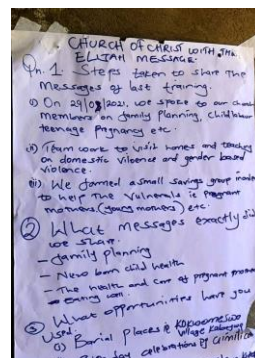 CHURCH OF CHRIST WITH THE
ELIJAH MESSAGE.
Qn. 1. Steps taken to share the
messages of last training.
i) On 29/03/2021, we spoke to our church
members on family planning, child labour
teenage pregnancy etc.
ii) Team work to visit homes and teaching
on domestic violence and gender based
violence.
iii) We formed a small savings group
to help the Vulnerable ie pregnant
mothers, (young mothers) etc.
② What messages exactly did
we share.
- family planning
- New born child health
- The health and care of pregnant
- Eating
③ What opportunities have you
used:
i) Burial places
village
celebrations of